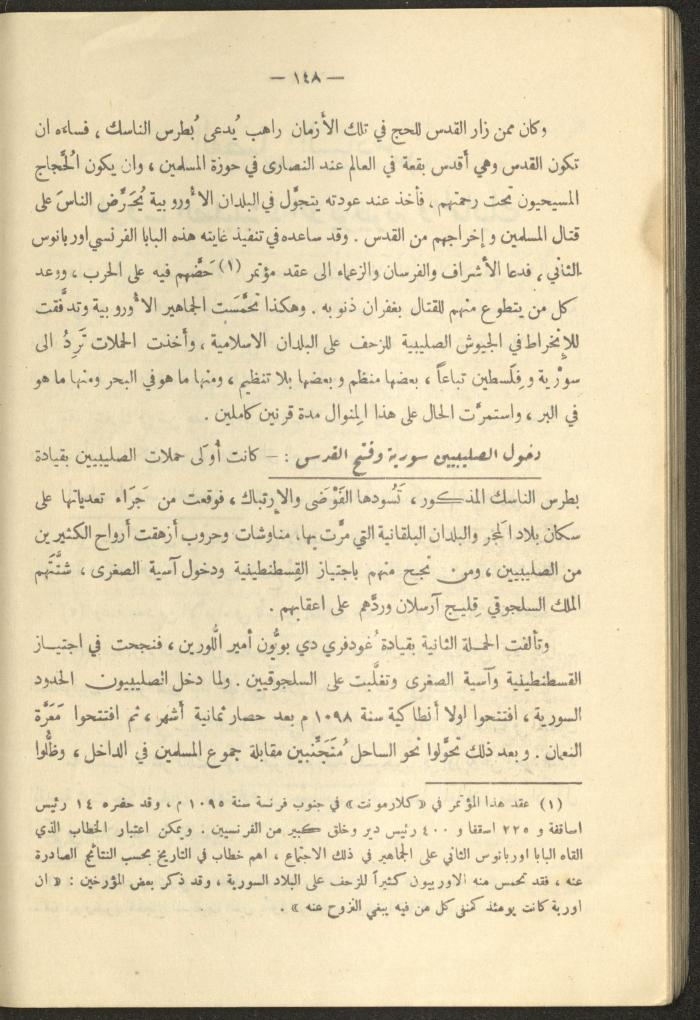 — ١٤٨ —
وكان ممن زار القدس للحج في تلك الأزمان راهب يُدعى بُطرس الناسك ، فساءه ان
تكون القدس وهي أقدس بقعة في العالم عند النصارى في حوزة المسلمين ، وان يكون الحُجاج
المسيحيون تحت رحمتهم ، فأخذ عند عودته يتجوَّل في البلدان الأوروبية يُحَرِّض الناسَ على
قتال المسلمين وإخراجهم من القدس . وقد ساعده في تنفيذ غايته هذه البابا الفرنسي اوربانوس
الثاني ، فدعا الأشراف والفرسان والزعماء الى عقد مؤتمر (١) حَضَّهم فيه على الحرب ، ووعد
كل من يتطوع منهم للقتال بغفران ذنوبه . وهكذا تحمَّسَت الجماهير الأوروبية وتدفَّقت
للإنخراط في الجيوش الصليبية للزحف على البلدان الاسلامية ، وأخذت الحملات تَرِدُ الى
سورْية وفِلَسطين تباعاً ، بعضها منظم وبعضها بلا تنظيم ، ومنها ما هو في البحر ومنها ما هو
في البر ، واستمرَّت الحال على هذا المِنوال مدة قرنين كاملين .
دخول الصليبيين سورية وفتح القدس : — كانت أُولَى حملات الصليبيين بقيادة
بطرس الناسك المذكور ، تَسُودها الفَوْضَى والإرتباك ، فوقعت من جَرَاء تعدياتها على
سكان بلاد المَجَر والبلدان البلقانية التي مرَّت بها، مناوشات وحروب أزهقت أرواح الكثيرين
من الصليبيين ، ومن نجح منهم باجتياز القِسطنطينية ودخول آسية الصغرى ، شتَّتَهم
الملك السلجوقي قِليج آرسلان وردَّهم على اعقابهم .
وتألفت الحملة الثانية بقيادة غُودفري دي بويُّون أمير اللُّورين ، فنجحت في اجتياز
القسطنطينية وآسية الصغرى وتغلَّبت على السلجوقيين . ولما دخل الصليبيون الحدود
السورية ، افتتحوا اولا أنطاكية سنة ١٠٩٨ م بعد حصار ثمانية أشهر ، ثم افتتحوا مَعَرَّة
النعمان . وبعد ذلك تحوَّلوا نحو الساحل مُتَجَنِّبين مقابلة جموع المسلمين في الداخل ، وظَلُّوا
(١) عقد هذا المؤتمر في «كلارمونت» في جنوب فرنسة سنة ١٠٩٥ م ، وقد حضره ١٤ رئيس
اساقفة و ٢٢٥ اسقفا و ٤٠٠ رئيس دير وخلق كبير من الفرنسيين . ويمكن اعتبار الخطاب الذي
القاه البابا اوربانوس الثاني على الجماهير في ذلك الاجتماع ، اهم خطاب في التاريخ بحسب النتائج الصادرة
عنه ، فقد تحمس منه الاوربيون كثيراً للزحف على البلاد السورية ، وقد ذكر بعض المؤرخين : « ان
اوربة كانت يومئذ كمنفى كل من فيه يبغي النزوح عنه » .